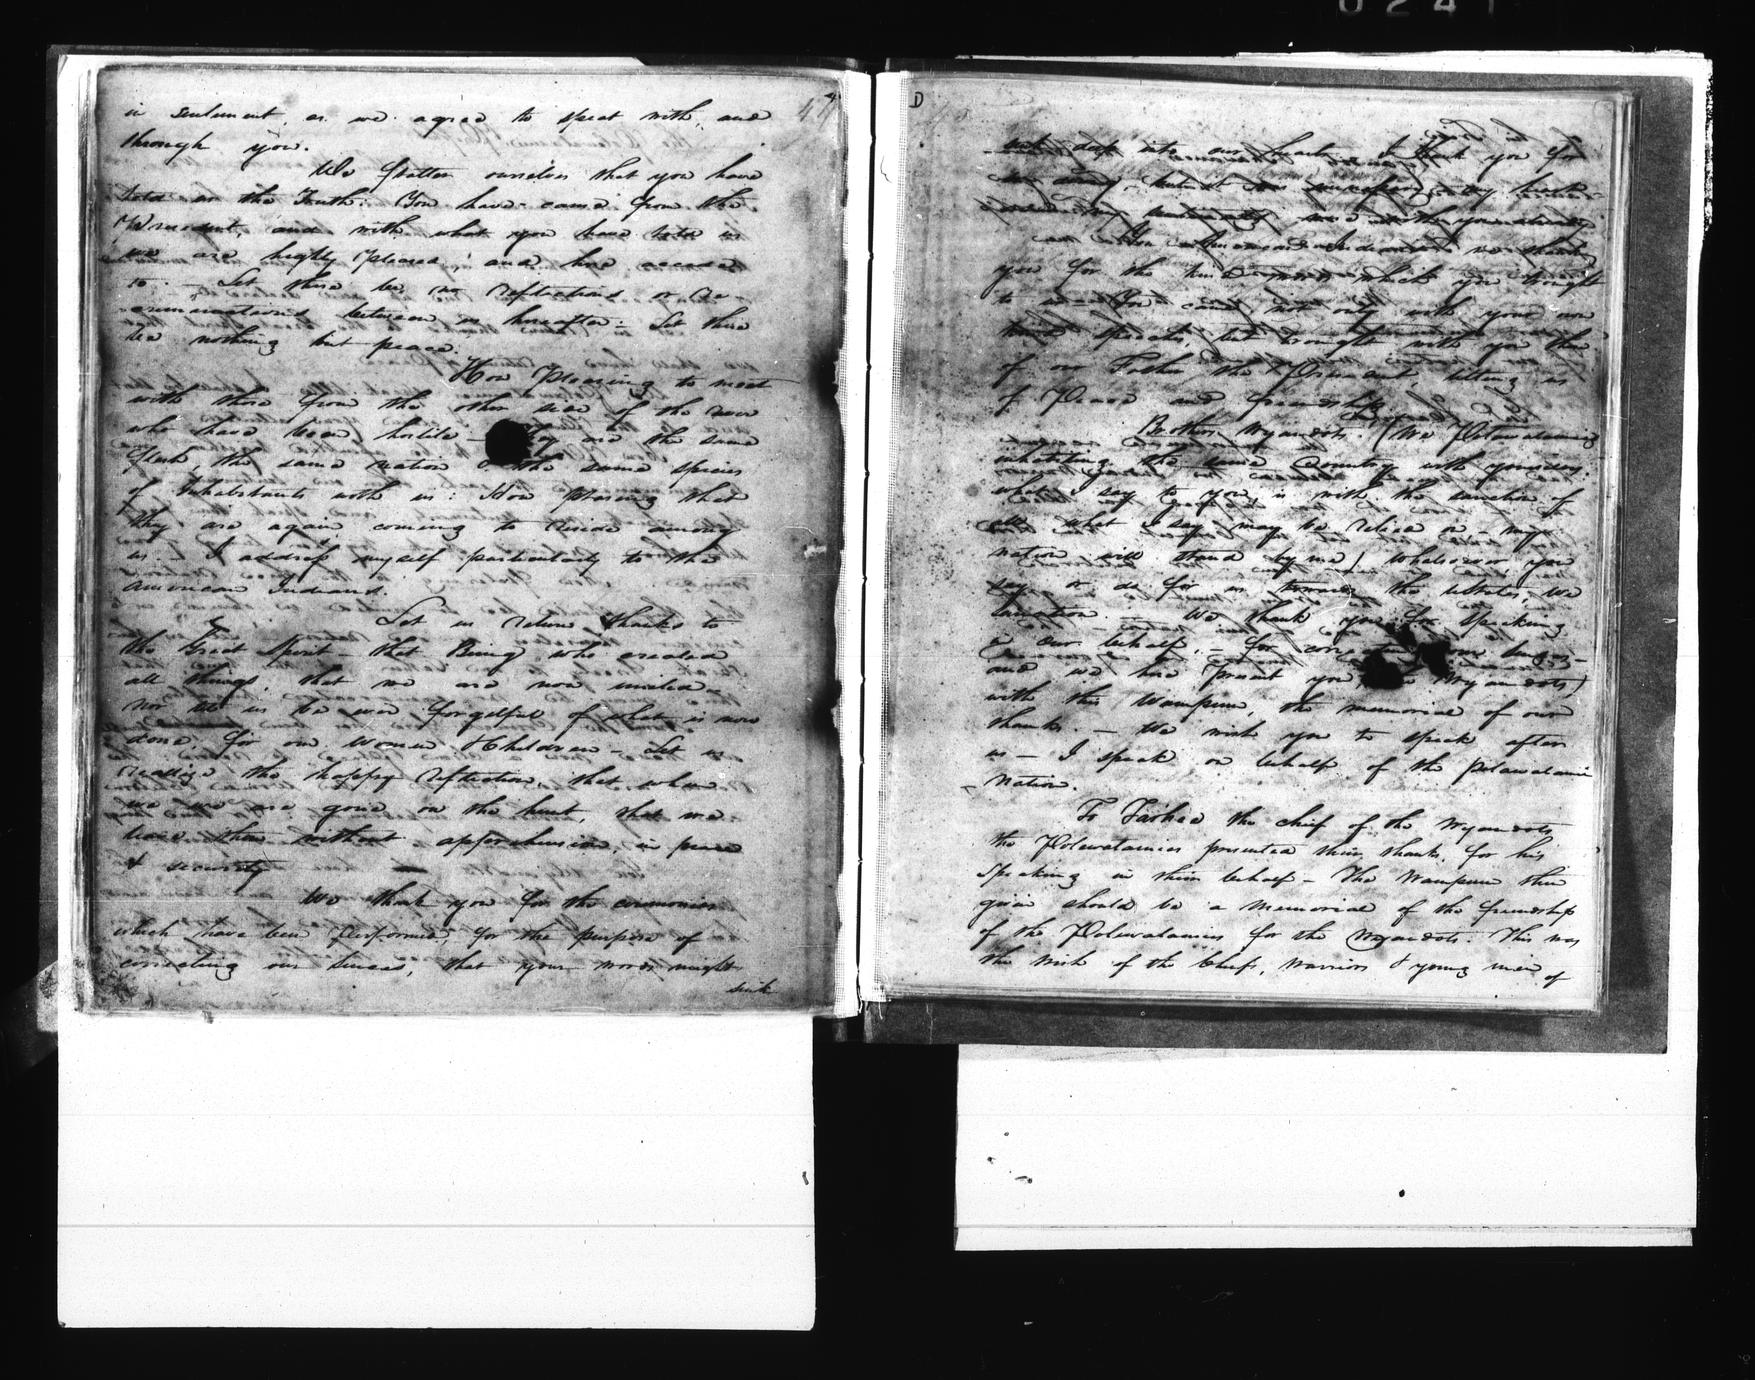 0241
47
in sentiment, as we agree to speak with, and
through you.
We flatter ourselves that you have
told us the Truth: You have come from the
President, and with what you have told us
we are highly pleased, and have acceded
to. — Let there be no reflections or re
criminations between us hereafter — Let there
be nothing but peace.
How Pleasing to meet
with those from the other side of the river
who have been hostile — They are the same
flesh, the same nation & the same species
of Inhabitants with us: How pleasing that
they are again coming to reside among
us. — I address myself particularly to the
American Indians.
Let us return thanks to
the Great Spirit — that Being who created
all things, that we are now united —
nor let us be ever forgetful of what is now
done, for our Women & Children — Let us
realize the happy reflection, that when
we are gone on the hunt, that we
leave them without apprehension, in peace
& security
We thank you for the ceremonies
which have been performed, for the purpose of
correcting our senses, that your words might
sink
D
sink deep into our hearts. I thank you for
so doing, but it was
my
American Indians we thank
you for the kind words which you brought
to us — You came not only with your own
kind speeches, but brought with you those
of our Father the President, telling us
of Peace and friendship
Brothers Wyandots. (We Potawatamies
inhabiting the same Country with yourselves.
what I say to you, is with the sanction of
all what I say may be relied on — my
nation will stand by me) Whatsoever you
say or do for us towards the States, we
sanction. — We thank you for speaking
our behalf, — for
and we here present you, Wyandots)
with this Wampum, the memorial of our
thanks. — We wish you to speak often
us — I speak on behalf of the Potawatamie
nation.
To Tarhee the chief of the Wyandots
the Potewatamies presented their thanks, for his
speaking in their behalf — The Wampum then
given should be a memorial of the friendship
of the Potewatamies for the Wyandots. This was
the wish of the Chiefs, warriors & young men of